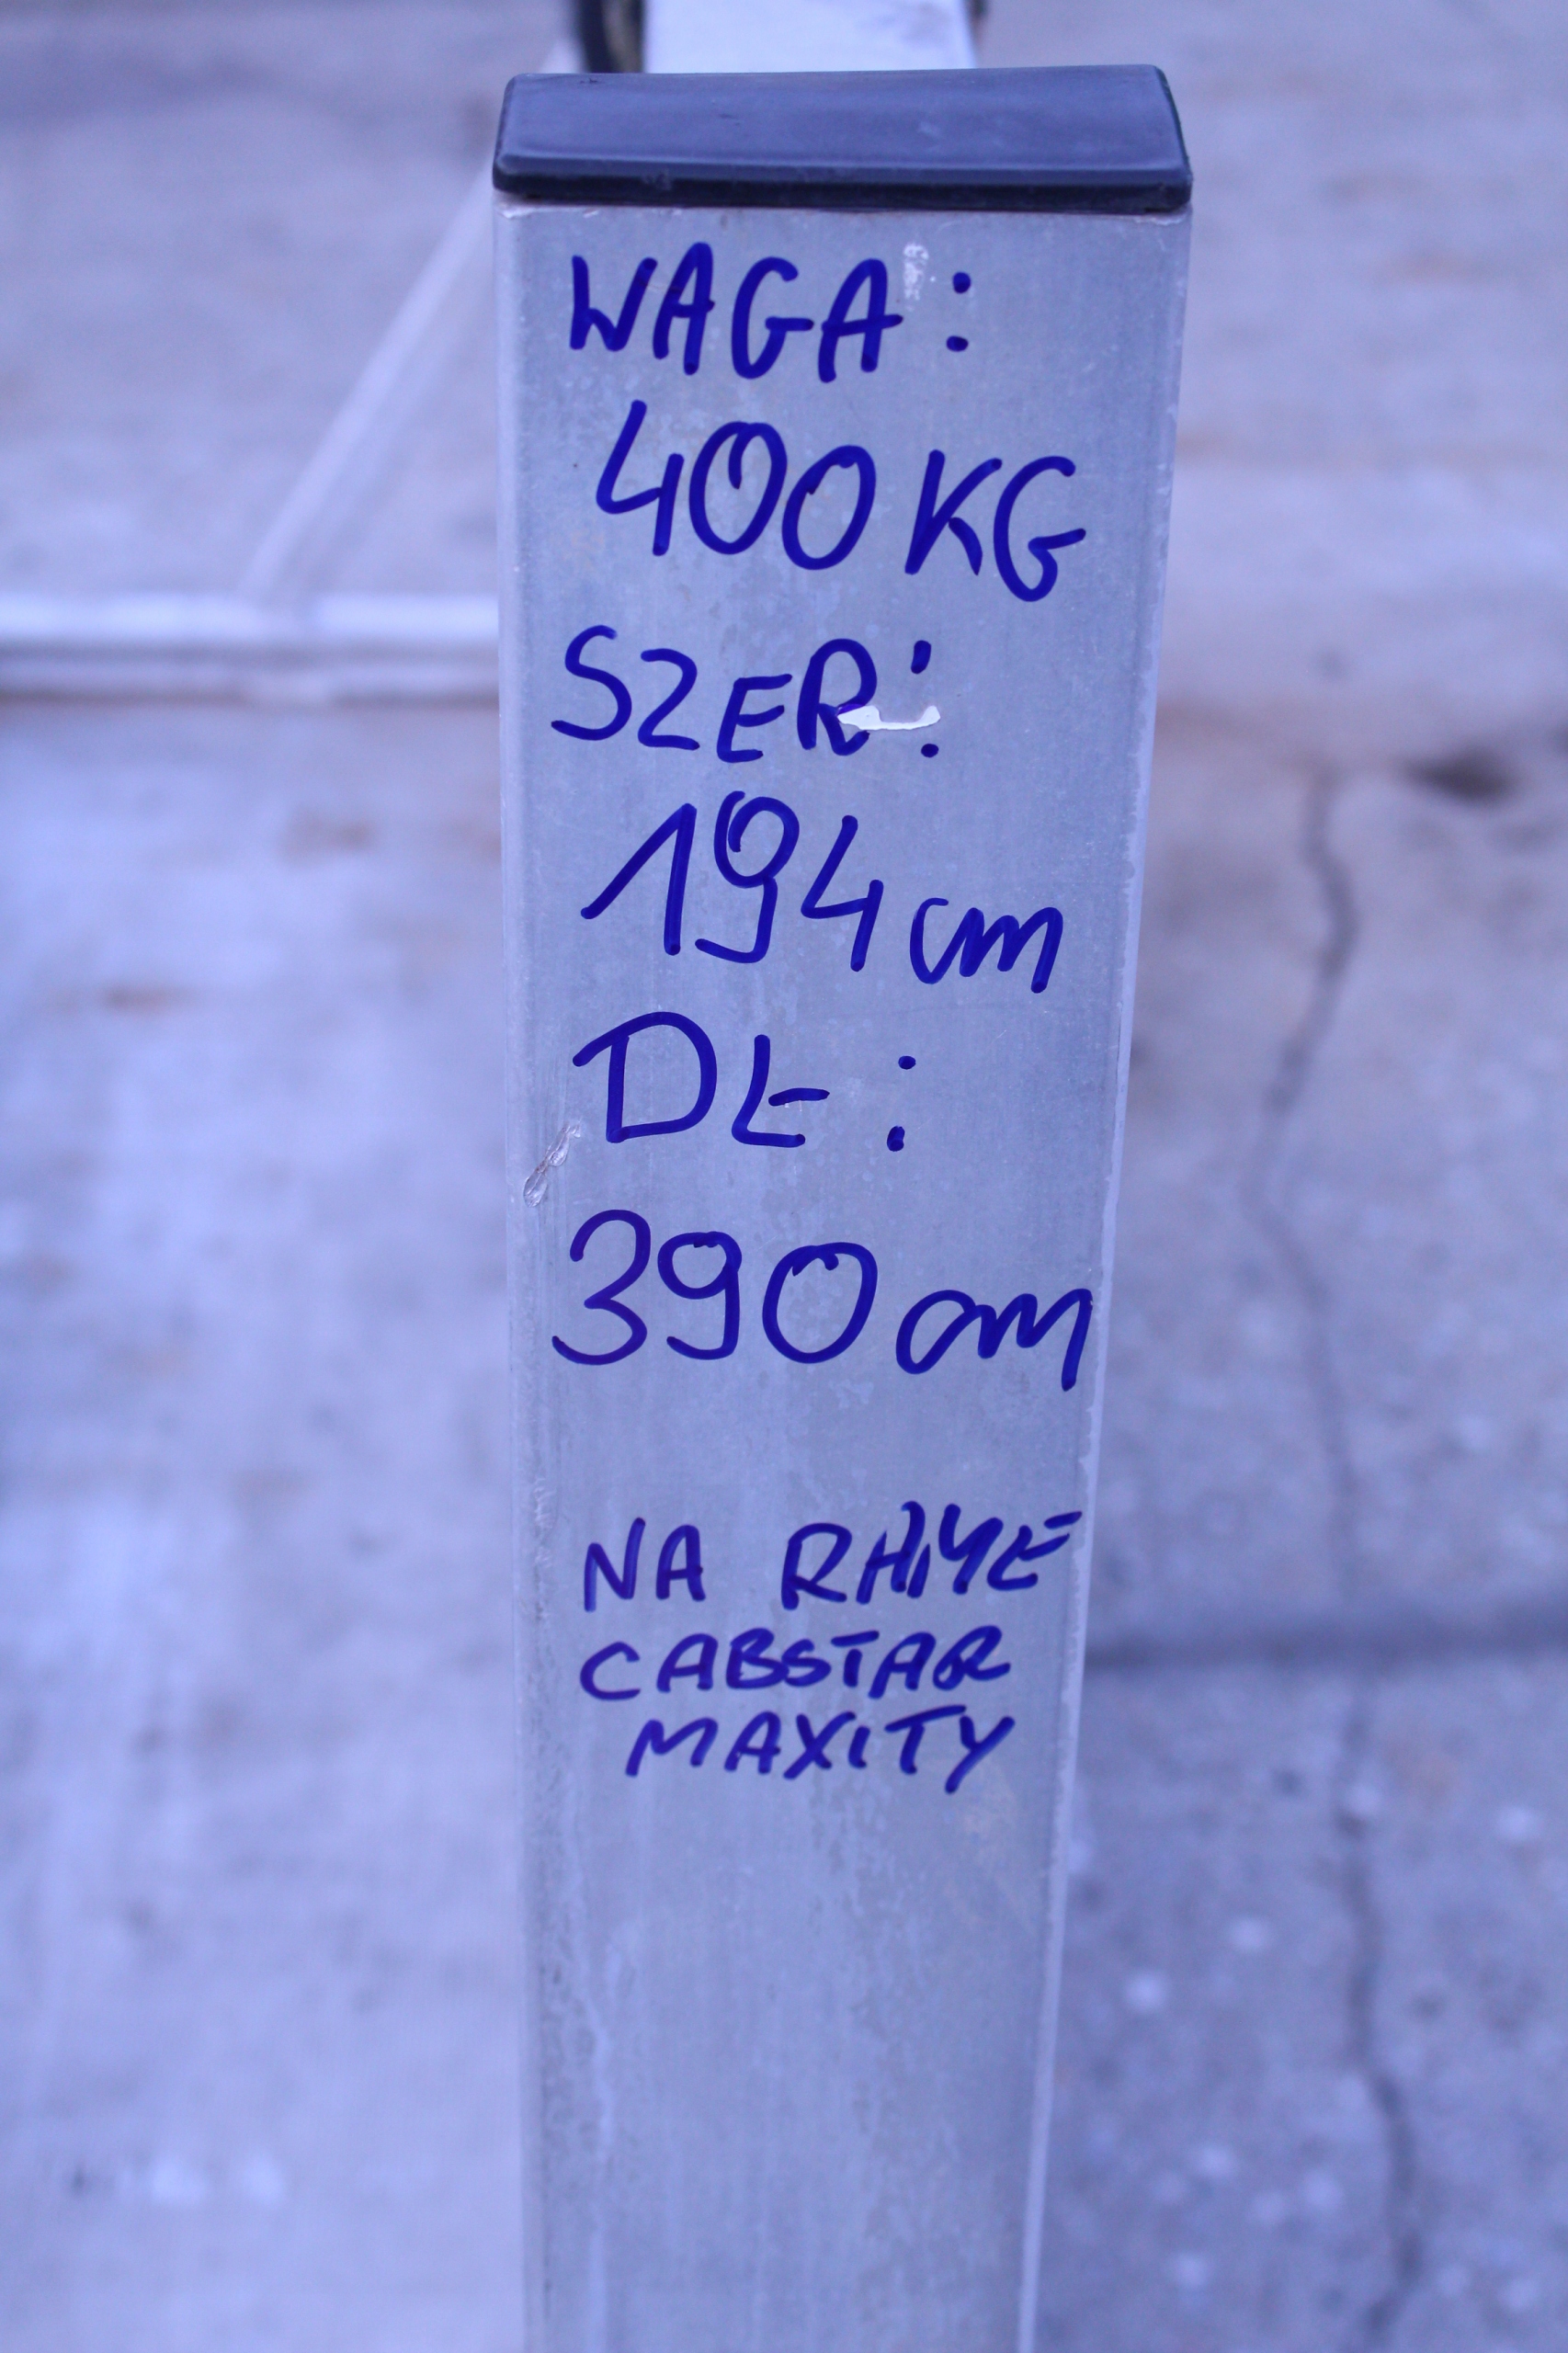 WAGA:
400 KG
SZER:
194 cm
DŁ:
390 cm
NA RAMĘ
CABSTAR
MAXITY